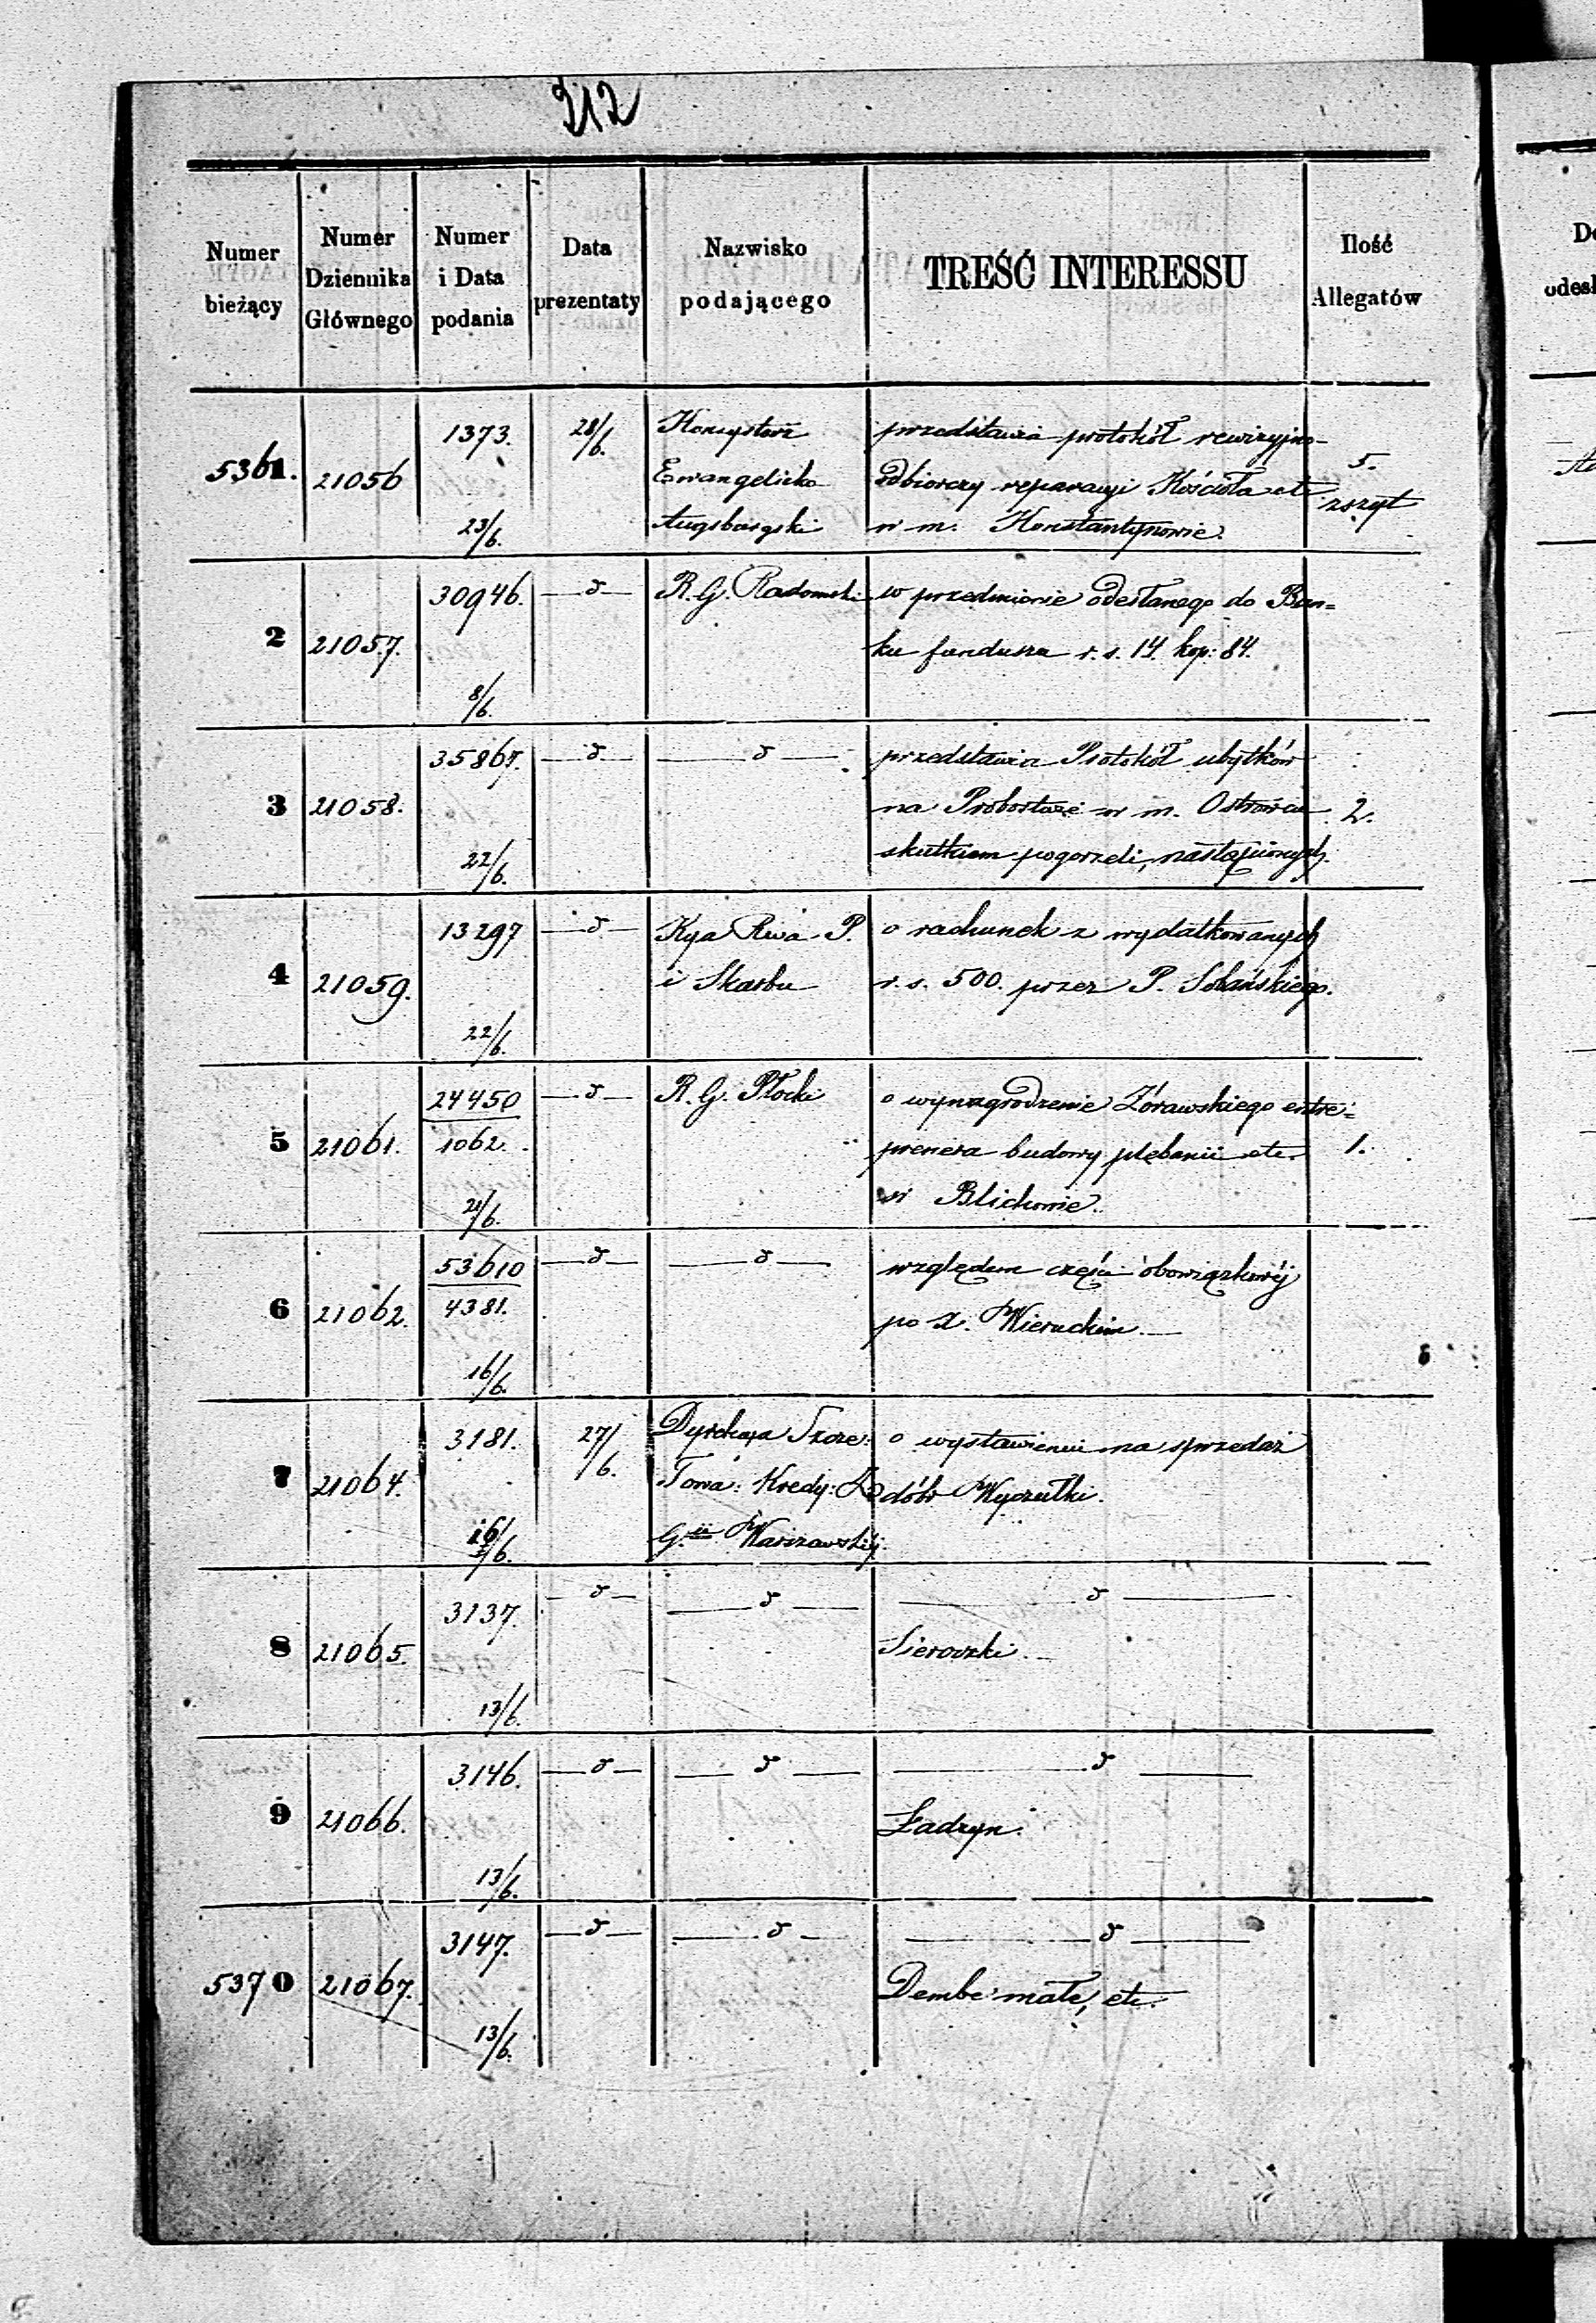 212
Numer bieżący
Numer Dziennika Głównego
Numer i Data podania
Data prezentaty
Nazwisko podającego
TREŚĆ INTERESSU
Ilość Allegatów
5361. 21056 1373. 23/6. 28/6.
Konsystorz
Ewangelicko
Augsburgski
przedstawia protokół rewizyjno-
odbiorczy reparacyi Kościoła etc
w m. Konstantynowie.
5.
zszyt
2 21057. 30946. 8/6. —d—
R. G. Radomski
w przedmiocie odesłanego do Ban=
ku funduszu r. s. 14. kop: 84.
3 21058. 35867. 22/6. —d— —d—
przedstawia Protokół ubytków
na Probostwie w m. Ostrowcu
skutkiem pogorzeli, nastąpionych.
2.
4 21059. 13297 22/6. —d—
Kya Rwa P.
i Skarbu
o rachunek z wydatkowanych
r. s. 500. przez P. Sobańskiego.
5 21061. 24450 1062. 21/6. —d—
R. G. Płocki
o wynagrodzenie Żórawskiego entre=
prenera budowy plebanii etc.
w Blichowie.
1.
6 21062. 53610 4381. 16/6. —d— —d—
względem części obowiązkowéj
po X.
7 21064. 3181. 16/6. 27/6.
Dyrekcya Szcze:
Towa: Kredy: Z
G.ii Warszawskiéj.
o wystawieniu na sprzedaż
dóbr Wyczułki.
8 21065. 3137. 13/6. —d— —d— —d—
Sieroczki.
9 21066. 3146. 13/6. —d— —d— —d—
Ładzyn.
5370 21067. 3147. 13/6. —d— —d— —d—
Dembe małe, etc.